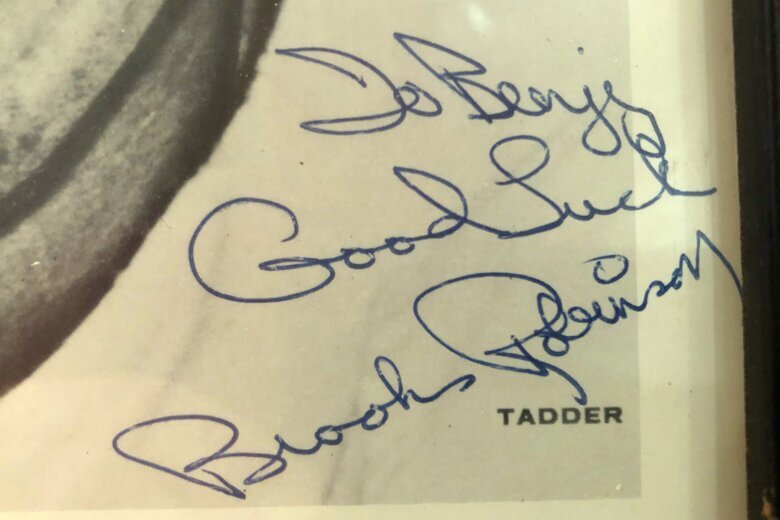 To Benjy
Good Luck
Brooks Robinson
TADDER